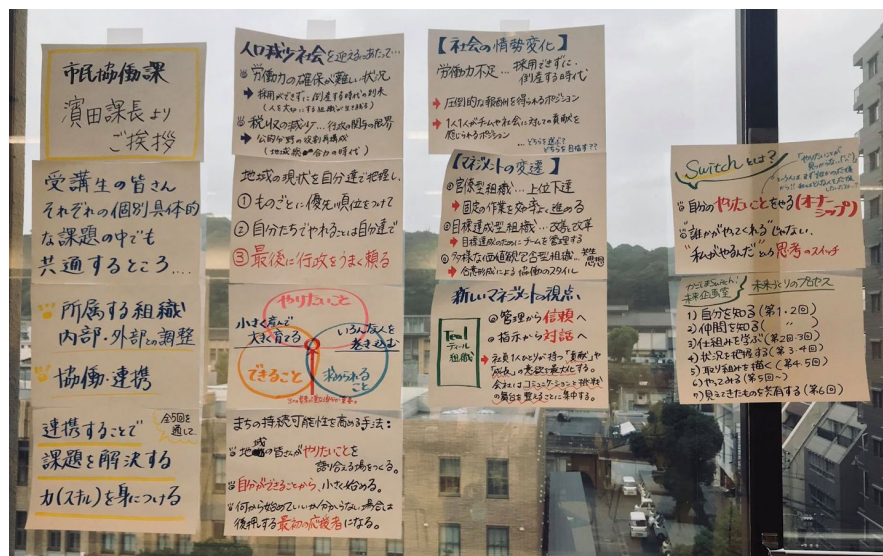 市民協働課
濵田課長より
ご挨拶
受講生の皆さん
それぞれの個別具体的
な課題の中でも
共通するところ....
所属する組織
内部・外部との調整
協働・連携
全5回を
通して
連携することで
課題を解決する
力(スキル)を身につける
人口減少社会を迎えるにあたって…
労働力の確保が難しい状況
➡ 採用ができずに倒産する時代の到来
(人を大切にする組織が生き残る)
税収の減少…行政の関与の限界
➡ 公的分野の役割再構成
(地域総合力の時代)
地域の現状を自分達で把握し、
①ものごとに優先順位をつけて
②自分たちでやれることは自分達で
③最後に行政をうまく頼る
やりたいこと
小さく産んで
大きく育てる
いろんな人を
巻き込む
できること
求められる
こと
まちの持続可能性を高める手法:
地域の皆さんがやりたいことを
語り合える場をつくる。
自分ができることから、小さく始める。
何から始めていいか分からない場合は
後押しする最初の応援者になる。
【社会の情勢変化】
労働力不足…採用できずに、
倒産する時代
➡ 圧倒的な報酬を得られるポジション
➡ 1人1人がチームや社会に対しての貢献を
感じられるポジション
…どちらを選ぶ?
どちらを目指す??
【マネジメントの変遷】
◎官僚型組織…上位下達
➡ 固定の作業を効率よく進める
◎目標達成型組織…改善、改革
➡ 目標達成のためにチームを管理する
◎多様な価値観で合型組織…共生
思想
➡ 合意形成による協働のスタイル
新しいマネジメントの視点
Teal
ティール
組織
◎管理から信頼へ
◎指示から対話へ
➡ 社員1人ひとりが持つ「貢献」や
「成長」の意欲を最大化する。
会社はコミュニケーションと挑戦
の舞台を整えることに集中する。
Switchとは?
「やりたいことが
見つからない…」
自分のやりたいことをやる(オーナー
シップ)
"誰かがやってくれる"じゃない、
"私がやるんだ"という思考のスイッチ
未来企画室
未来づくりのプロセス
1) 自分を知る(第1・2回)
2) 仲間を知る( 〃 )
3) 仕組みを学ぶ(第2回・3回)
4) 状況を把握する(第3・4回)
5) 取り組みを描く(第4・5回)
6) やってみる(第5回〜)
7) 見えてきたものを共有する(第6回)